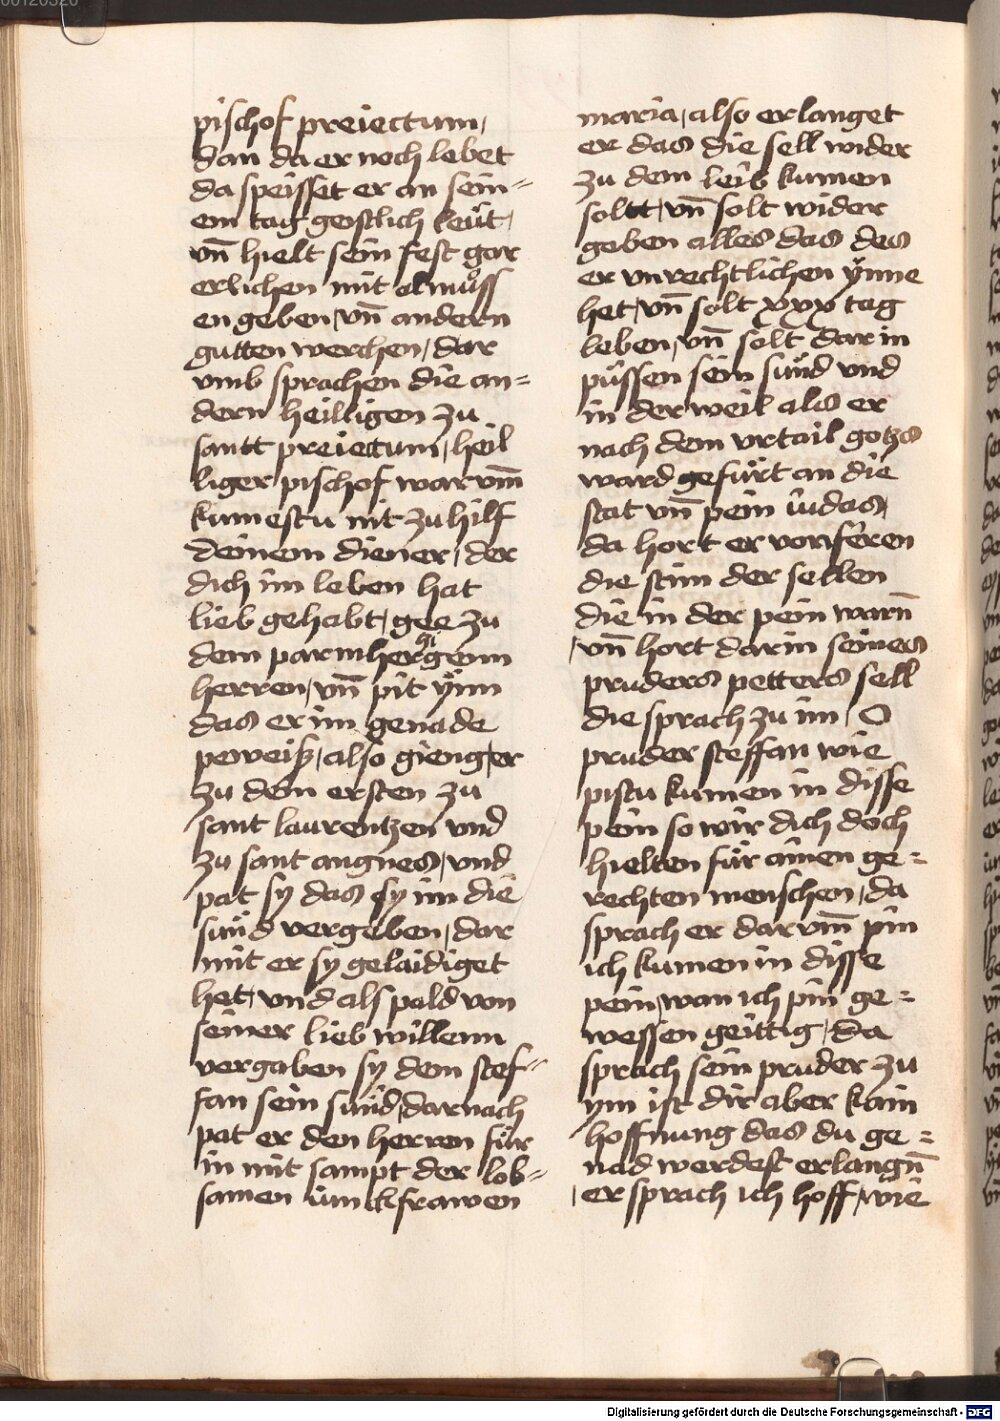 pischof preiectum,
dan da er noch lebet
da speisset er an sein=
em tag geistlich leüt,
vn̄ hielt sein fest gar
erlichen mit almuͦss
en geben, vn̄ andern
gutten werchen, dar
vmb sprachen die an=
dern heilligen zu
santt preiectum, heil
liger pischof warvm̄
kumestu nit zu hilf
deinem diener, der
dich im leben hat
lieb gehabt, gee zu
dem parmherczigenn
herren, vn̄ pit ÿnn
das er im genade
peweiß, also gieng er
zu dem ersten zu
sant laurentzen vnd
zu sant angnes, vnd
pat sy das sy im die
sünd vergeben, dar
mit er sy gelaidiget
het, vnd als pald von
seiner lieb willenn
vergaben sy dem stef=
fan sein sünd, darnach
pat er den herren für
in mit sampt der lob=
samen iunckfrawen
maria, also erlanget
er das die sell wider
zu dem leib kumen
soltt, vn̄ solt wider
geben alles das des
er vnrechtlichen ÿnne
het, vn̄ solt xxx tag
leben, vn̄ solt dar in
püssen sein sünd vnd
in der weil als er
nach dem vrtail gotzs
ward gefürt an die
stat vn̄ pein iudas,
da hort er von feren
die stim der sellen
die in der pein warn̄
, vn̄ hort darin seines
pruders petters sell
die sprach zu im, O
pruder steffan wie
pistu kumen in disse
pein so wir dich doch
hielten für ainen ge=
rechten menschen, da
sprach er darvm̄ pin
ich kumen in disse
pein, wan ich pin ge=
wessen geittig, da
sprach sein pruder zu
ym ist dir aber kain
hoffnung das du ge=
nad werdest erlangn̄
, er sprach ich hoff, wie
Digitalisierung gefördert durch die Deutsche Forschungsgemeinschaft - DFG